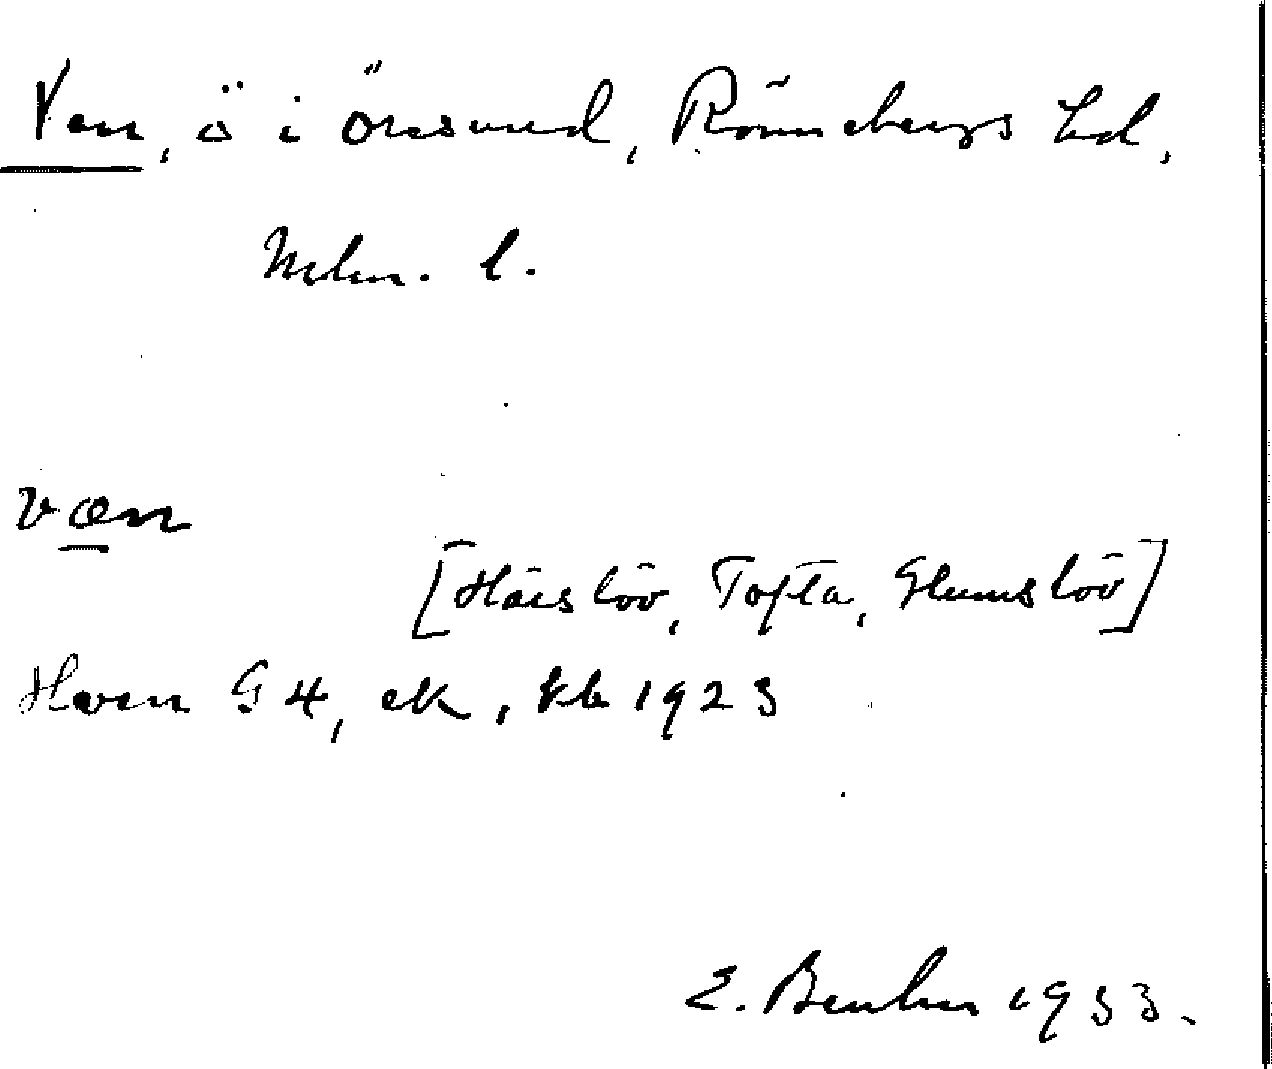 Ven, ö i Öresund, Rönnebergs hd,
Mlm. l.
væn
[Härslöv, Tofta, Glumslöv]
Hven G4, ek, kb 1923
E. 1933.